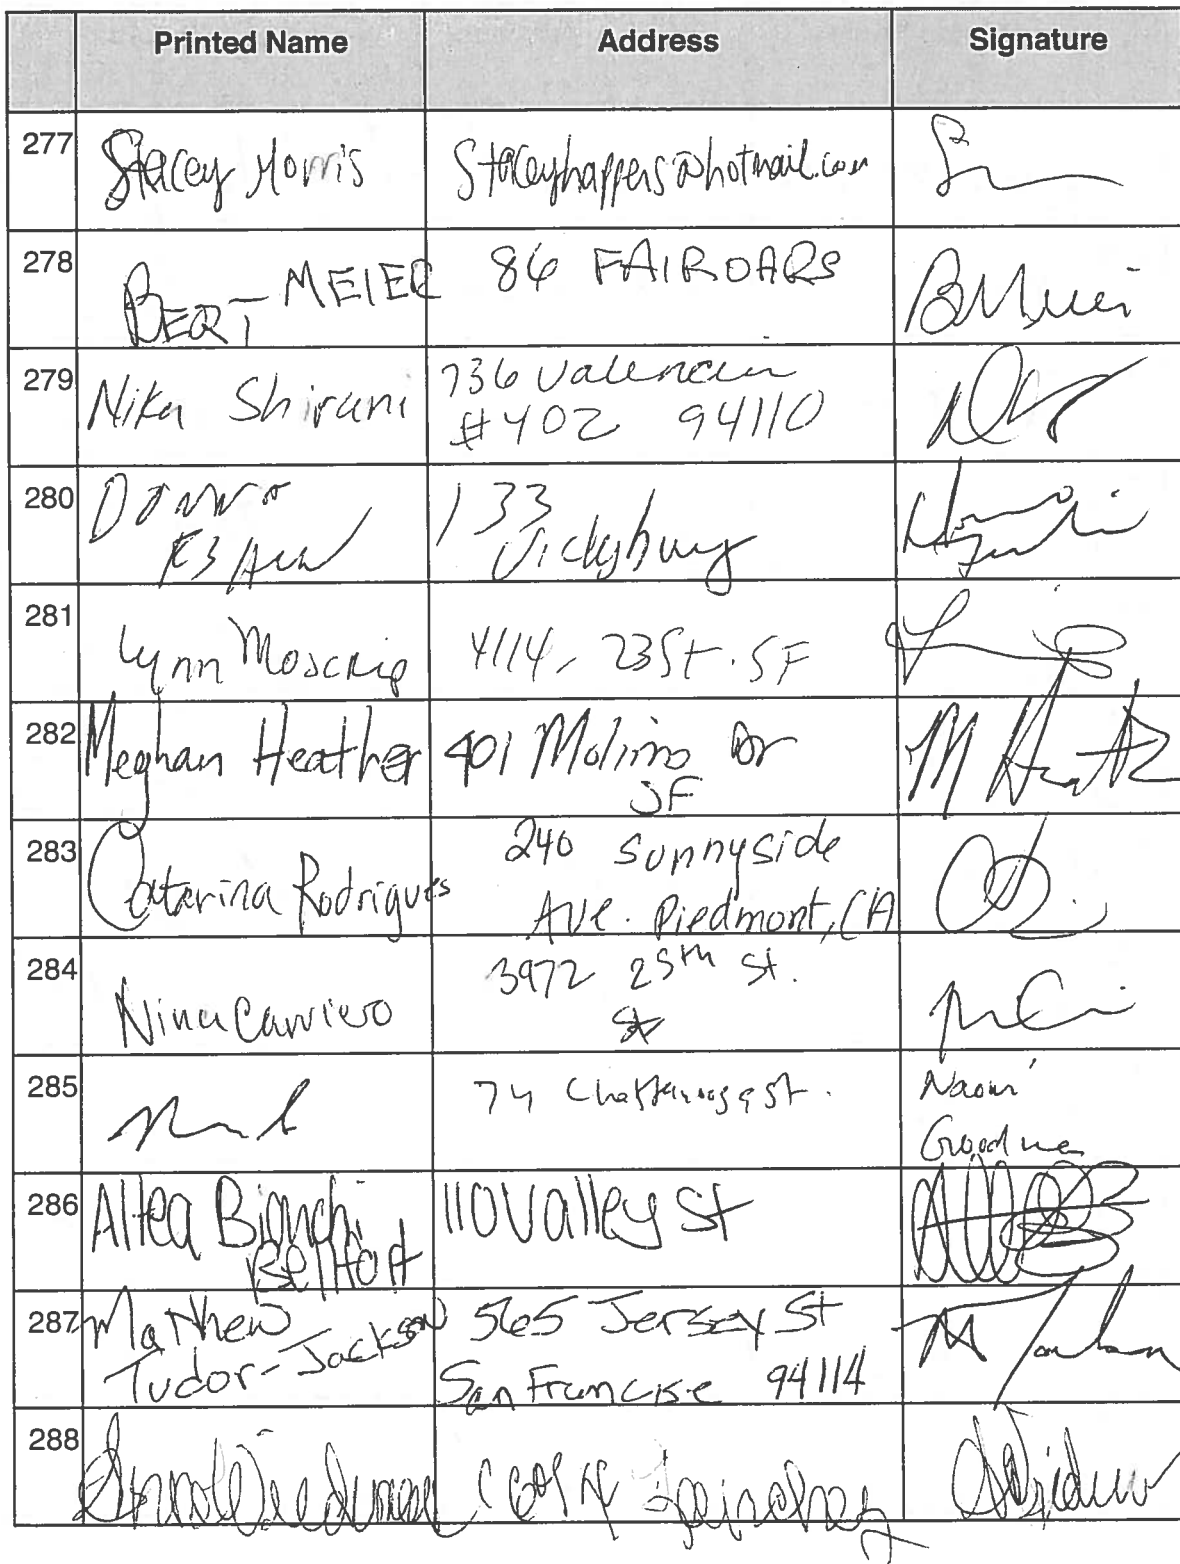 Printed Name Address Signature
277 Stacey Morris Staceyhappens@hotmail.com
278 BERT MEIER 86 FAIROAKS
279 Nika Shirani 736 Valencia
#402 94110
280 Donna 133
281 Lynn Moscrip 4114, 23 St. SF
282 Meghan Heather 401 Molimo Dr
SF
283 Catarina Rodrigues 240 Sunnyside
Ave. Piedmont, CA
284 Nina Carriero 3972 25th St.
285 74 Chattanooga St. Naomi
Goodman
286 Altea Bianchi 110 Valley St
Belfort
287 Mathew 565 Jersey St
Tudor-Jackson San Francisc 94114
288